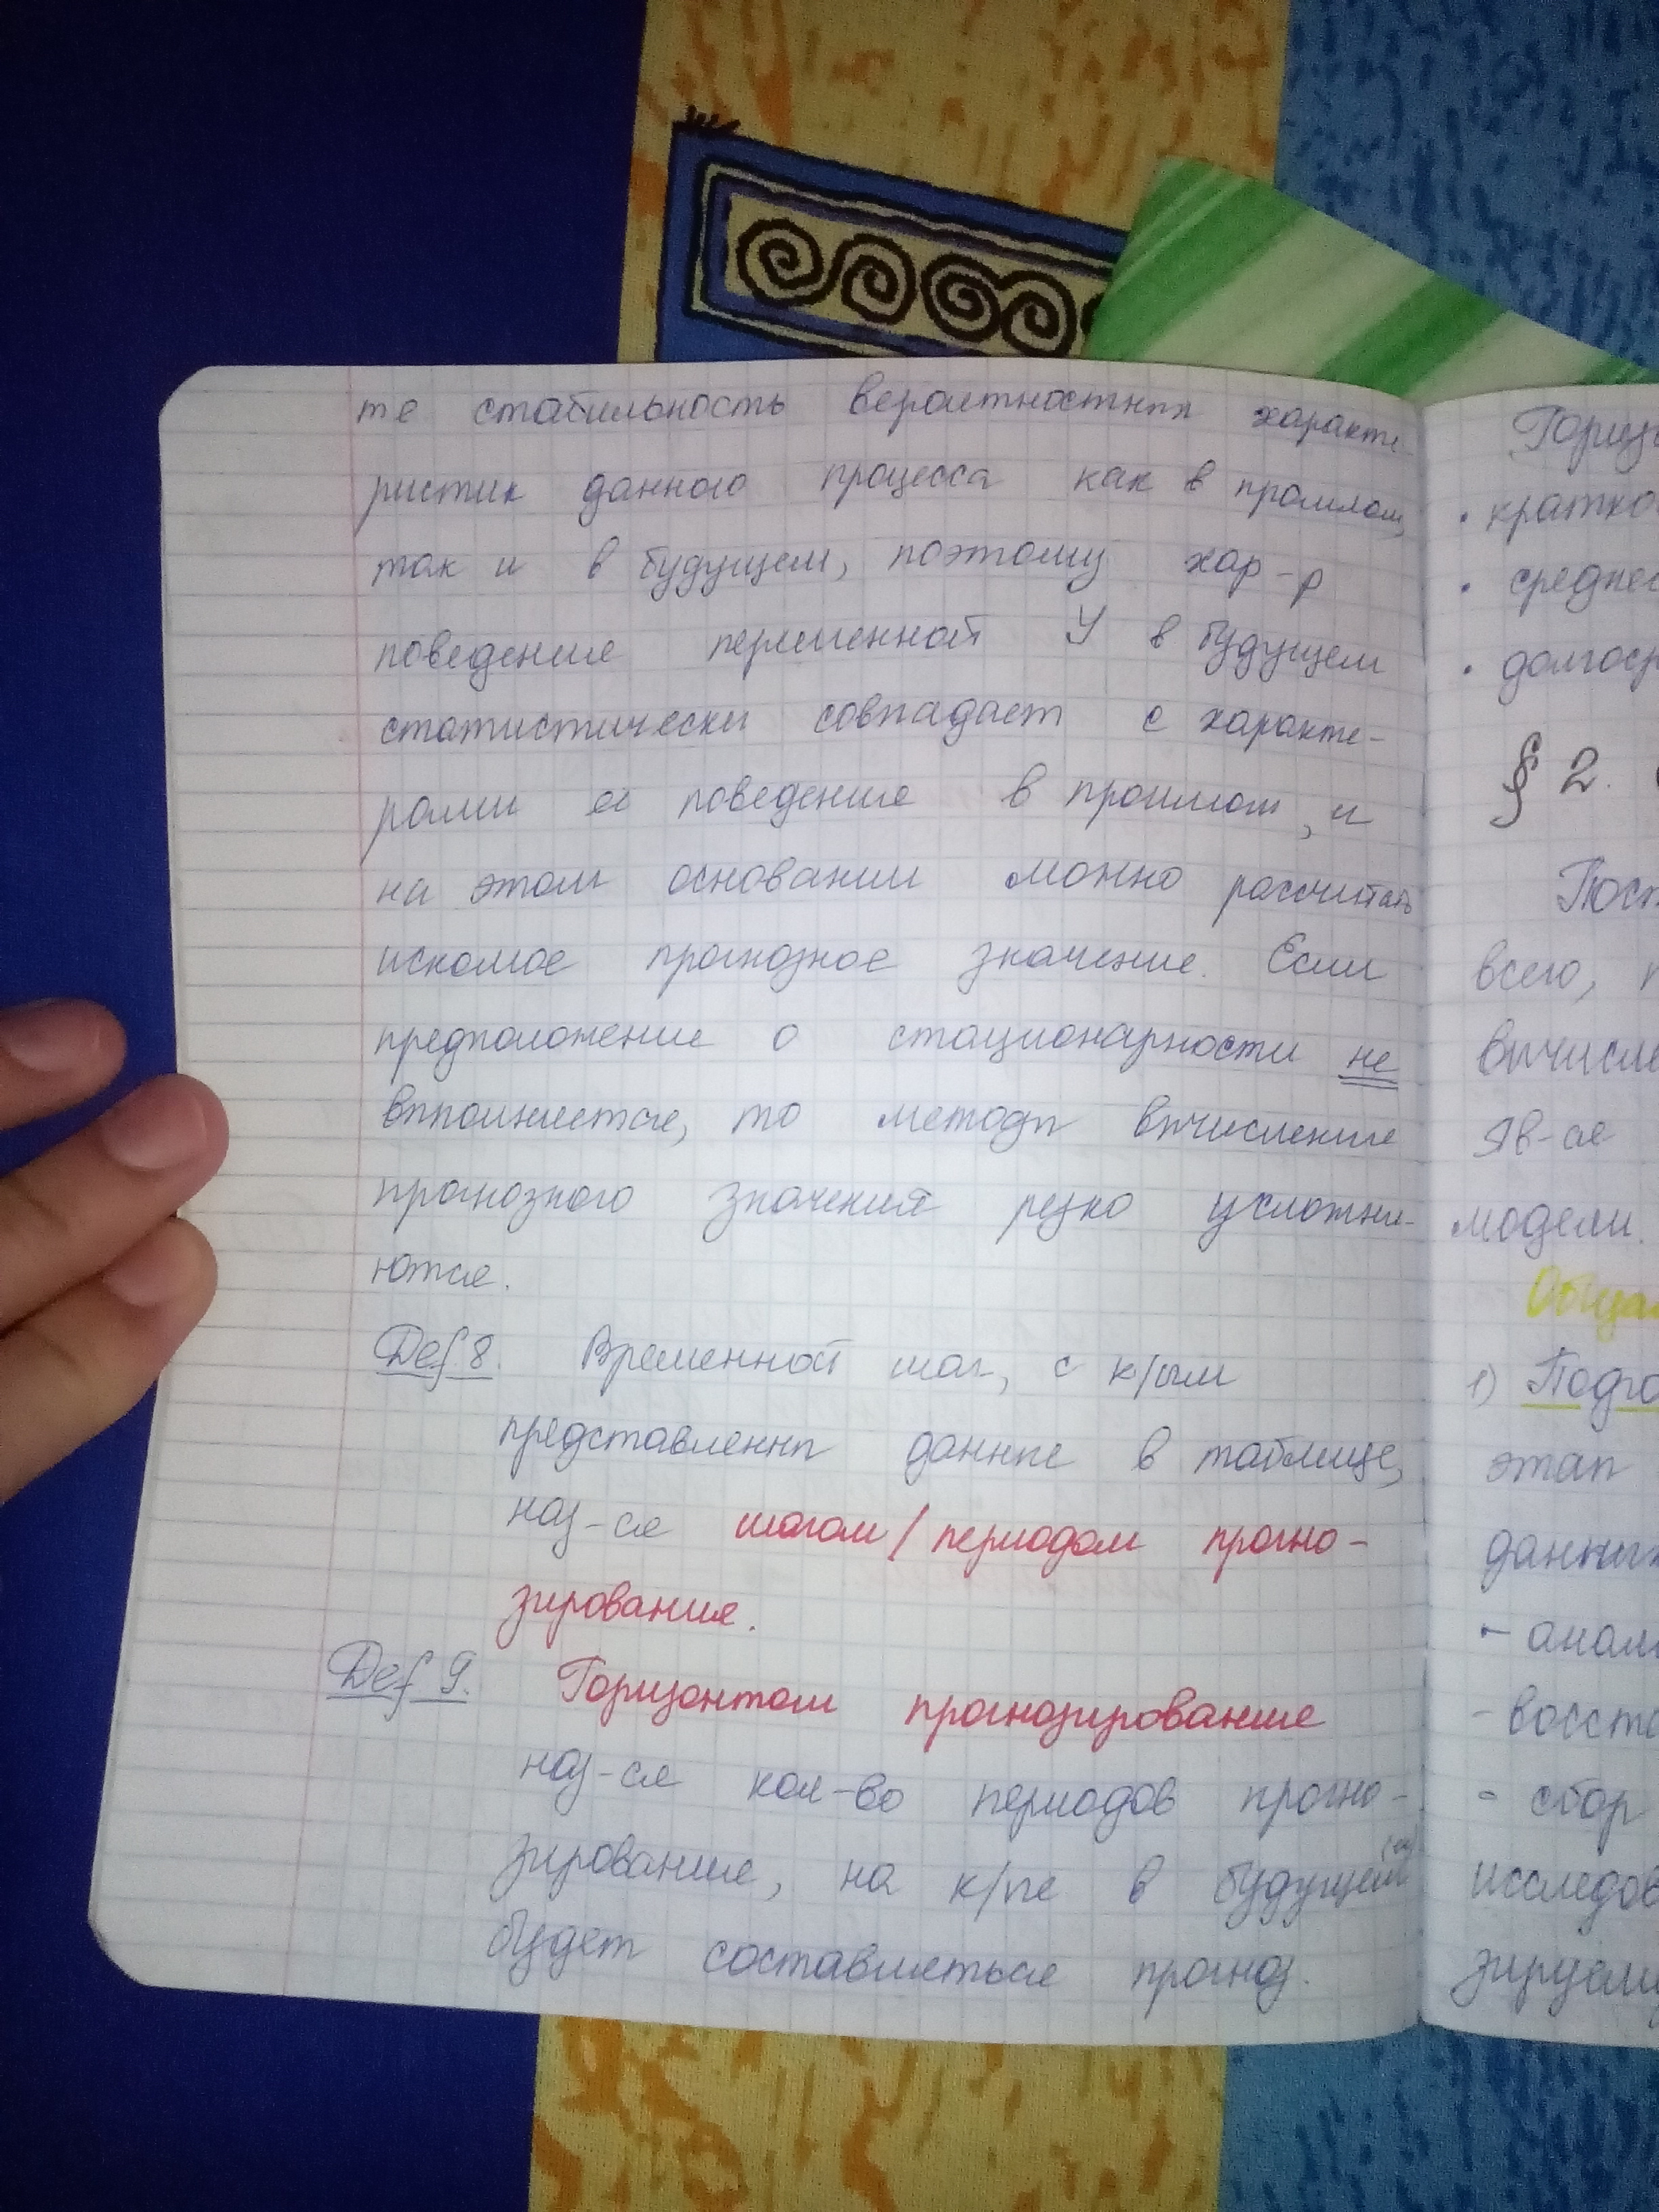 те стабильность вероятностных характе-
ристик данного процесса как в прошлом,
так и в будущем, поэтому хар-р
поведения переменной У в будущем
статистически совпадает с характе-
рами ее поведения в прошлом, и
на этом основании можно рассчитать
искомое прогнозное значение. Если
предположение о стационарности не
выполняется, то методы вычисления
прогнозного значения резко усложня-
ются.
Def 8. Временной шаг, с к/ым
представлены данные в таблице,
наз-ся шагом/периодом прогно-
зирования.
Def 9. Горизонтом прогнозирования
наз-ся кол-во периодов прогно-
зирования, на к/ые в будущем
будет составляться прогноз.
Гориз
• кратко
• среднес
• долгоср
§ 2.
Пост
всего, п
вычисле
яв-ся
модели.
Общая
1) Подго
этап
данных
- анали
- восста
- сбор
исследов
зируем